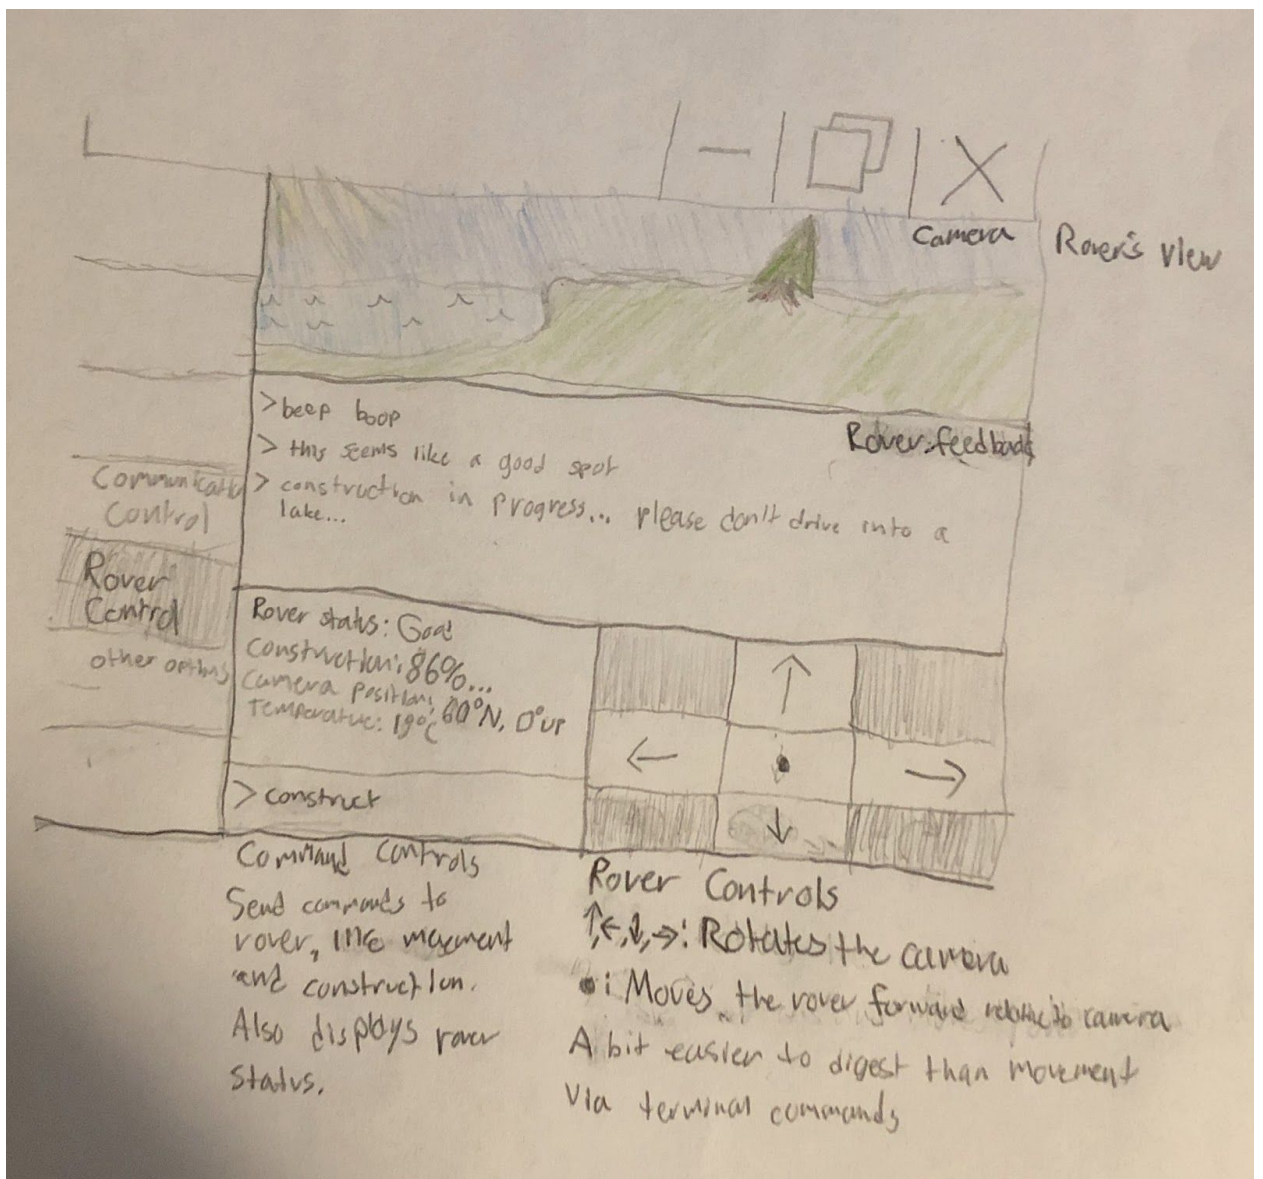 Camera
Rover's View
>beep boop
Rover feedback
> this seems like a good spot
> construction in progress... please don't drive into a
lake...
Communication
Control
Rover
Control
other options
Rover status: Good
Construction: 86%...
Camera position: 60°N, 0°up
Temperature: 19°C
↑
← • →
> construct
↓
Command Controls
Send commands to
rover, like movement
and construction.
Also displays rover
status.
Rover Controls
↑,←,↓,→: Rotates the camera
•: Moves the rover forward relative to camera
A bit easier to digest than movement
Via terminal commands